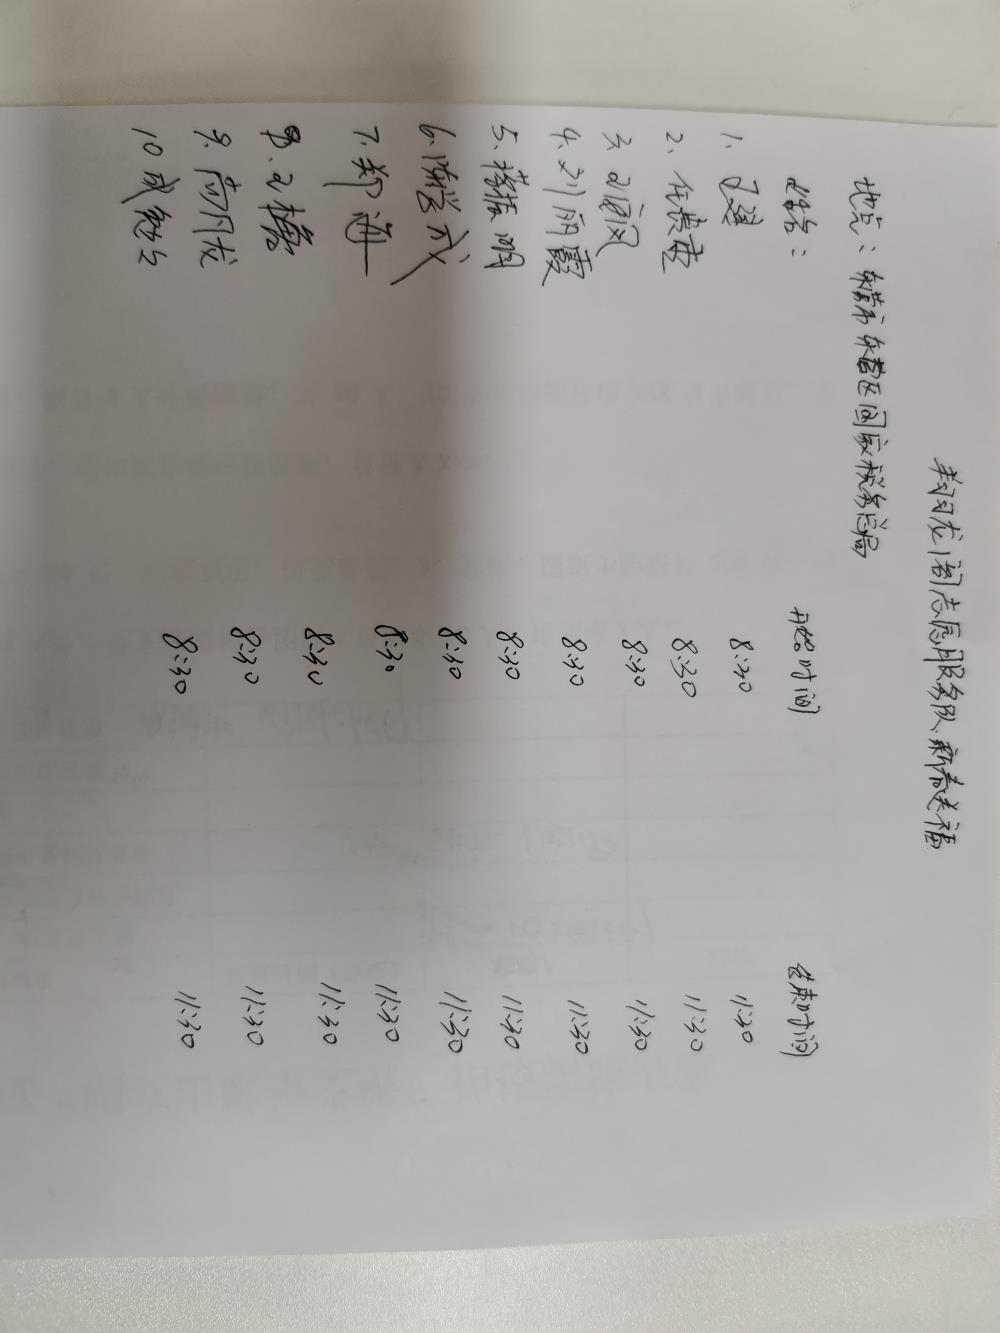 志愿服务队新春送福
地点：东营市东营区国家税务总局
姓名： 开始时间 结束时间
1. 8:30 11:30
2. 任 8:30 11:30
3. 8:30 11:30
4. 刘丽霞 8:30 11:30
5. 蒋振明 8:30 11:30
6. 陈学武 8:30 11:30
7. 郑海 8:30 11:30
8. 8:30 11:30
9. 尚月龙 8:30 11:30
10 成 8:30 11:30